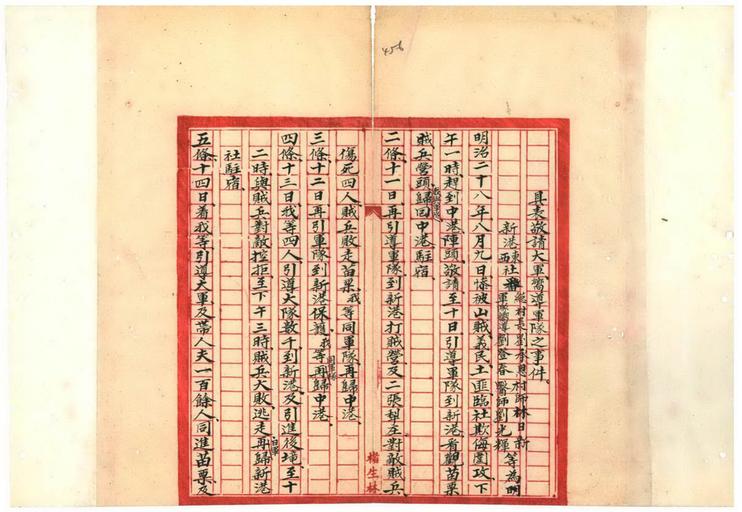 456
具表敬請大軍嚮導軍隊之事件。
新港東西社 總村長劉孝思村師林日新 軍隊嚮導劉登春醫師劉光輝 等為明
明治二十八年八月九日慘被山賊義民土匪臨社欺侮圍攻下
午一時趕到中港陣頭敬請至十日引導軍隊到新港看觀苗栗
賊兵營頭歸回中港駐宿
二條十一日再引導軍隊到新港打賊營及二張犁庄對敵賊兵
傷死四人賊兵敗走苗栗我等同軍隊再歸中港
三條十二日再引軍隊到新港保護我等再同軍隊歸中港
四條十三日我等四人引導大隊數千到新港及引進後壠至十
二時與賊兵對敵控拒至下午三時賊兵大敗逃走再歸新港
社駐宿
五條十四日着我等引導大軍及帶人夫一百餘人同進苗栗及
林生楷